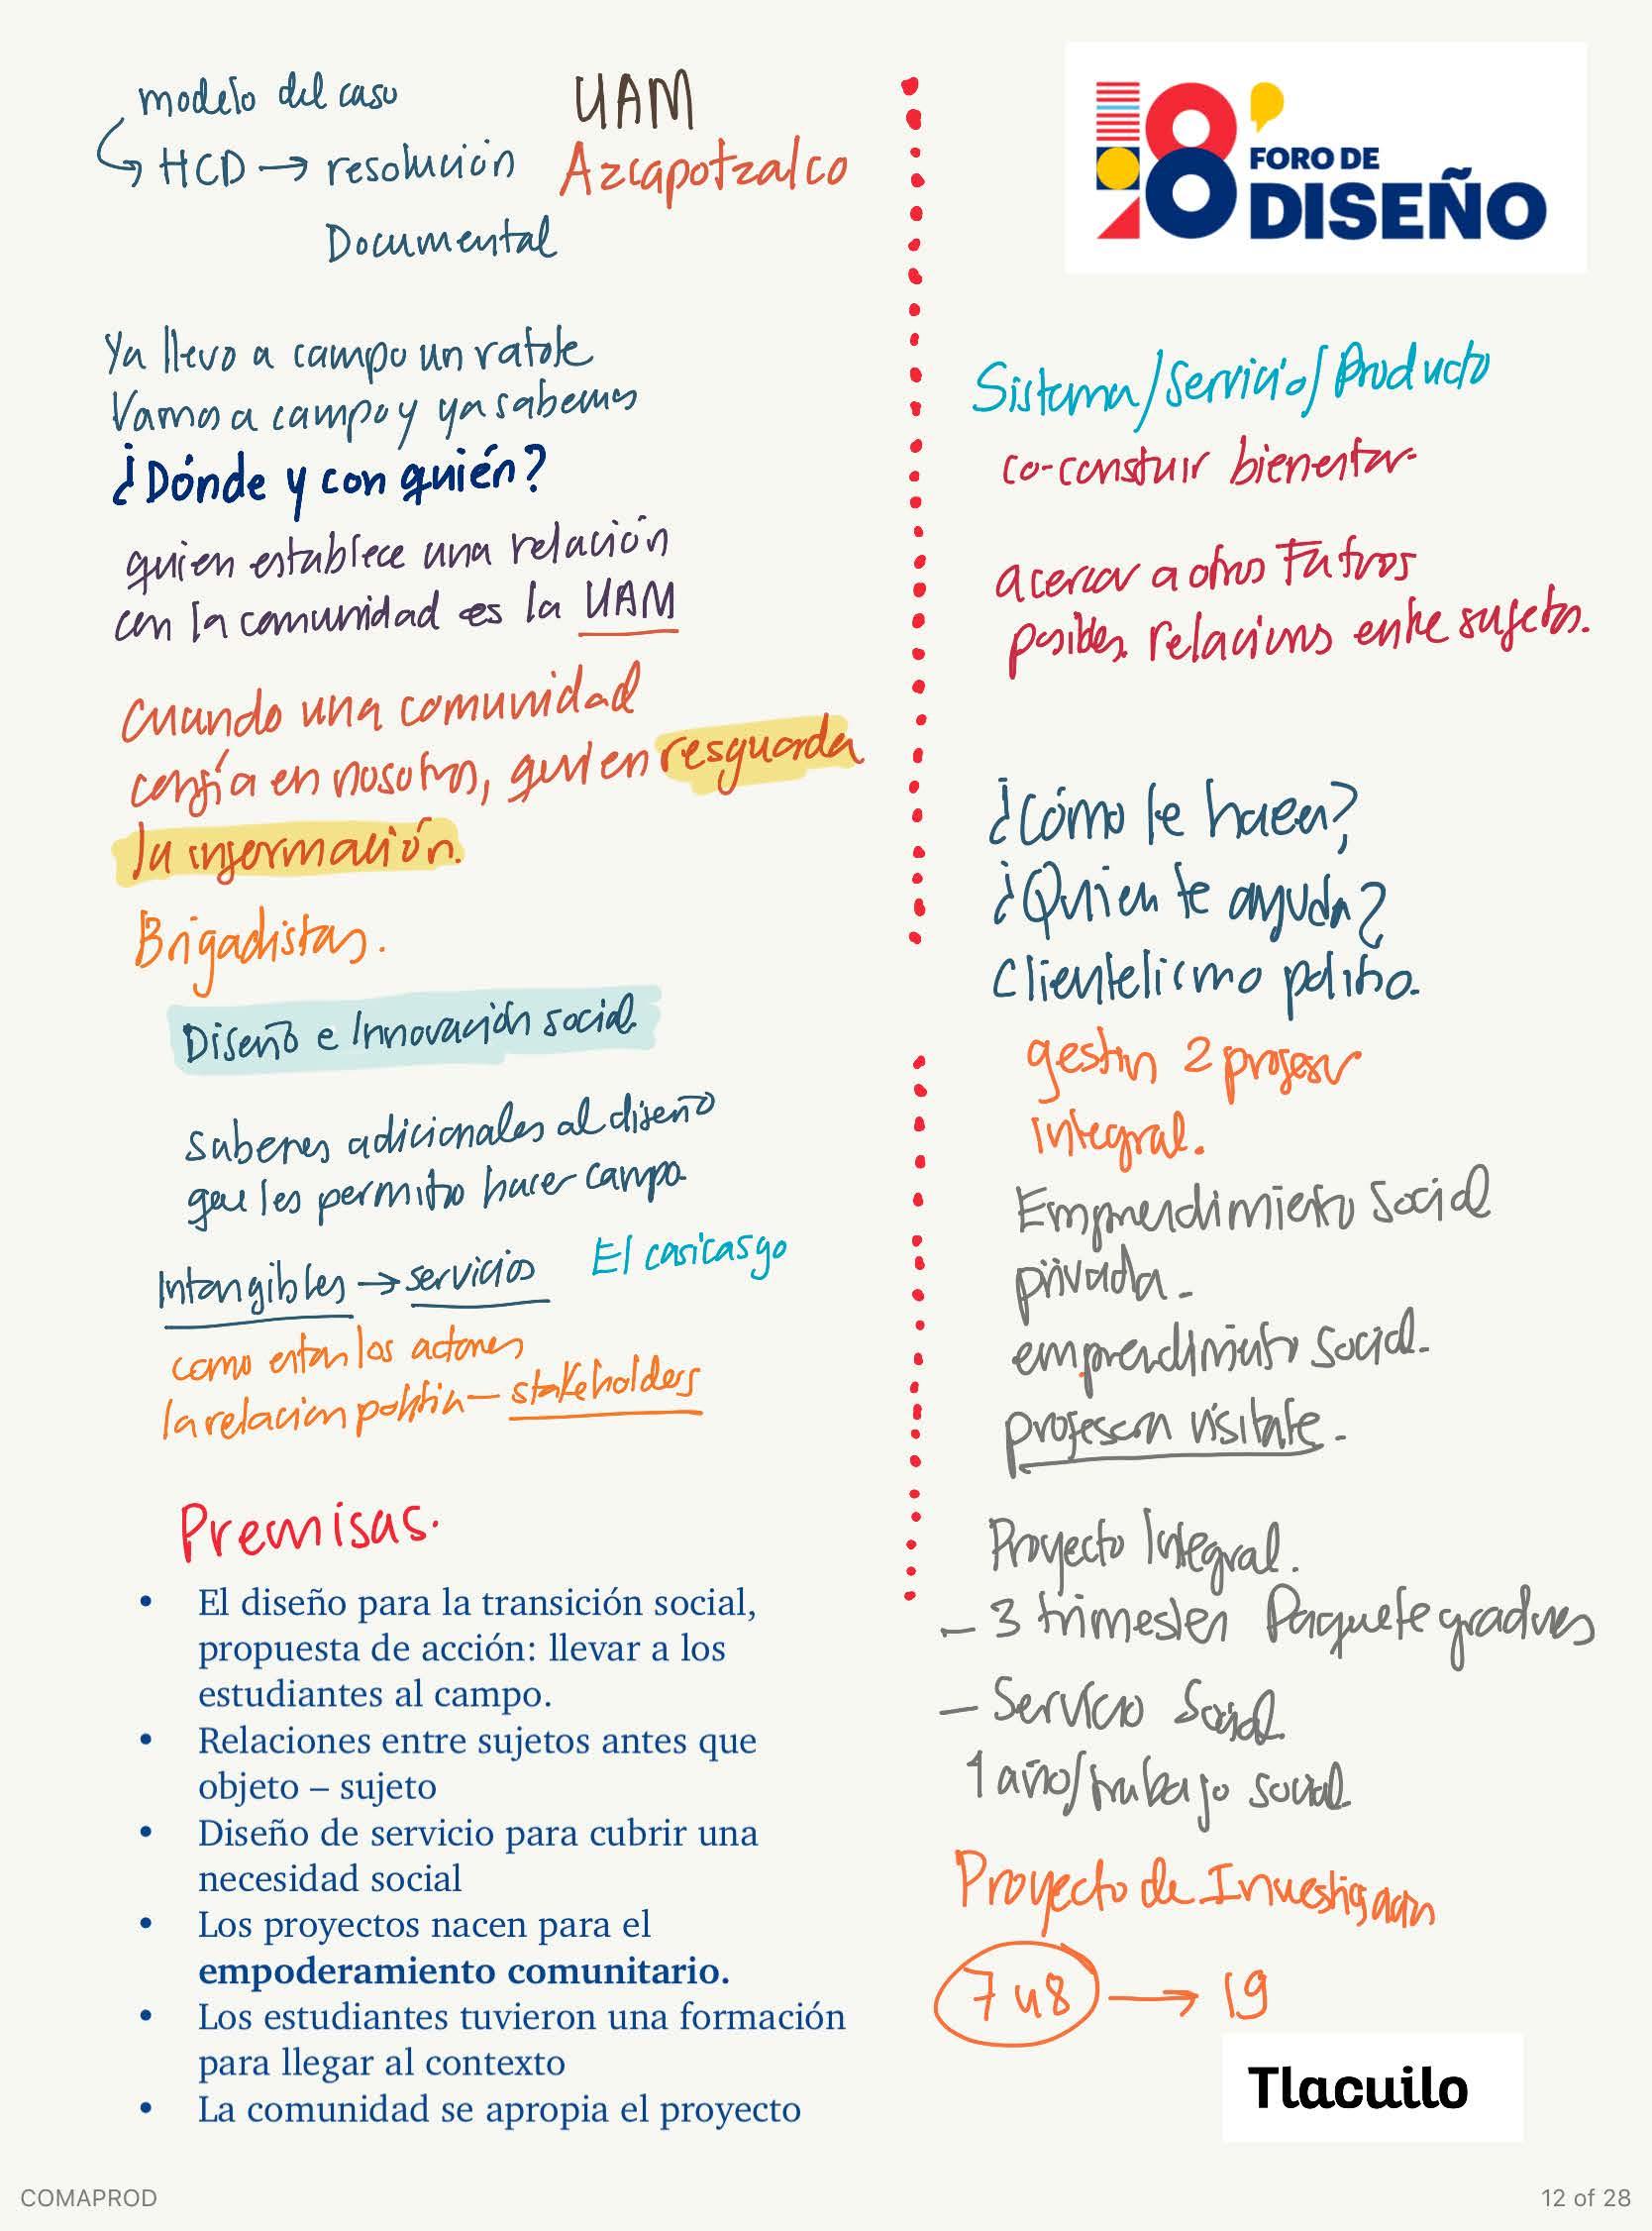 modelo del caso
HCD → resolución
Documental
UAM
Azcapotzalco
Ya llevo a campo un
Vamos a campo y ya sabemos
¿Dónde y con quién?
quien establece una relación
con la comunidad es la UAM
Cuando una comunidad
confía en nosotros, quien resguarda
la información.
Brigadistas.
Diseño e Innovación social
Saberes adicionales al diseño
que les permitio hacer campo
Intangibles → servicios
El casicasgo
como estan los actores
la relacion politica — stakeholders
Premisas.
• El diseño para la transición social,
propuesta de acción: llevar a los
estudiantes al campo.
• Relaciones entre sujetos antes que
objeto – sujeto
• Diseño de servicio para cubrir una
necesidad social
• Los proyectos nacen para el
empoderamiento comunitario.
• Los estudiantes tuvieron una formación
para llegar al contexto
• La comunidad se apropia el proyecto
18 FORO DE
DISEÑO
Sistema/Servicio/Producto
co-constuir bienestar
acercar a otros Futuros
posibles relaciones entre sujetos.
¿Cómo le hacen?
¿Quien te ayuda?
Clientelismo politico.
gestion 2 profesor
integral.
Emprendimiento Social
privada -
emprendimiento social -
profesora visitante -
Proyecto Integral.
- 3 trimestres Paquete
- Servicio Social
1 año/trabajo social
Proyecto de Investigacion
7 u 8 → 19
Tlacuilo
COMAPROD
12 of 28